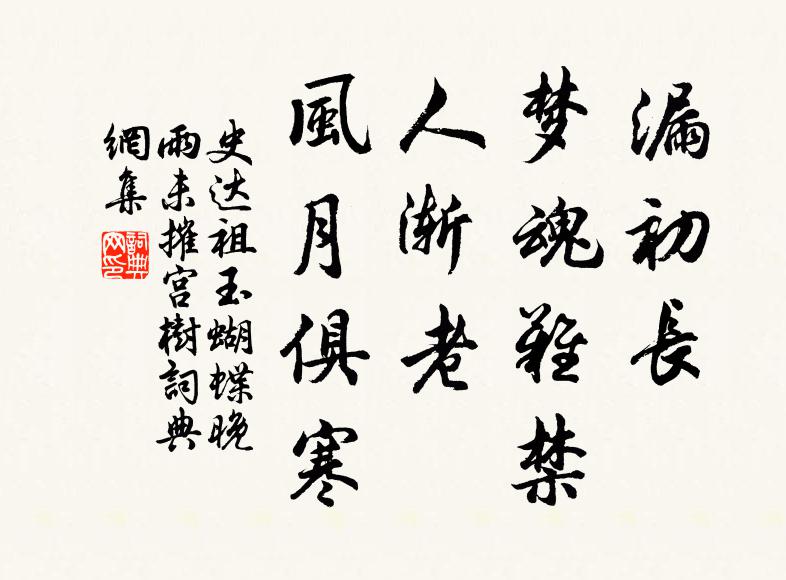 漏初長
梦魂難禁
人渐老
風月俱寒
史达祖玉蝴蝶晚
雨未摧宫樹詞典
網集
詞典
网印